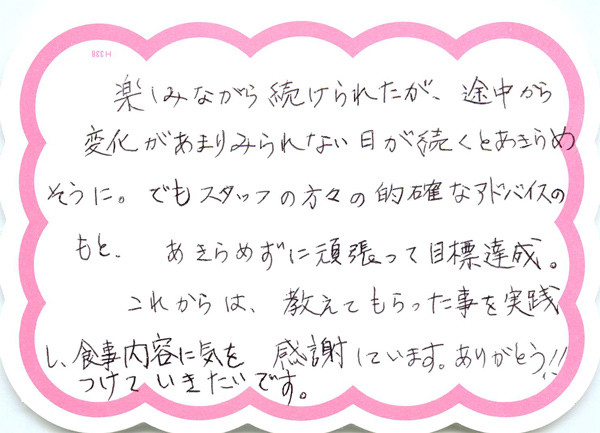 H338
楽しみながら続けられたが、途中から
変化があまりみられない日が続くとあきらめ
そうに。でもスタッフの方々の的確なアドバイスの
もと、あきらめずに頑張って目標達成。
これからは、教えてもらった事を実践
し、食事内容に気を 感謝しています。ありがとう!!
つけていきたいです。